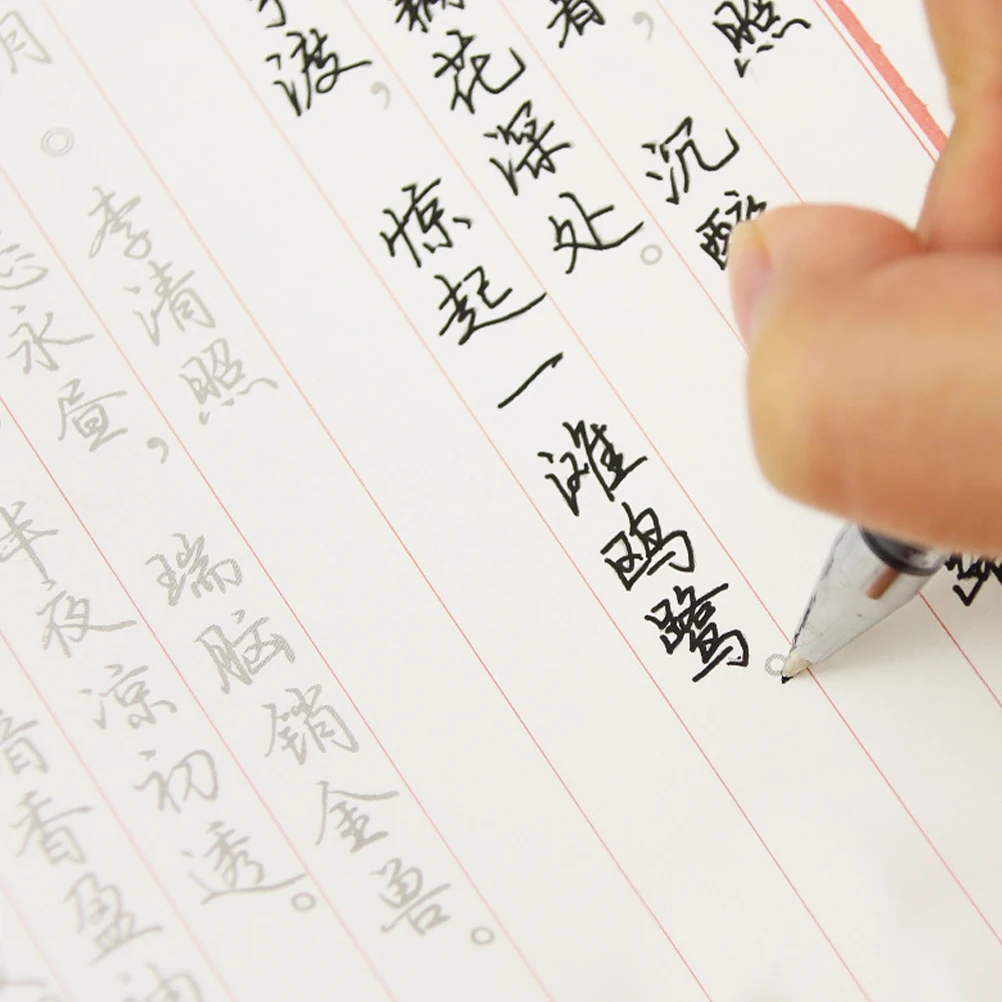 照
暮，沉醉
藕花深处。
争渡，惊起一滩鸥鹭。
月。李清照
愁永昼，瑞脑销金兽。
半夜凉初透。
暗香盈袖